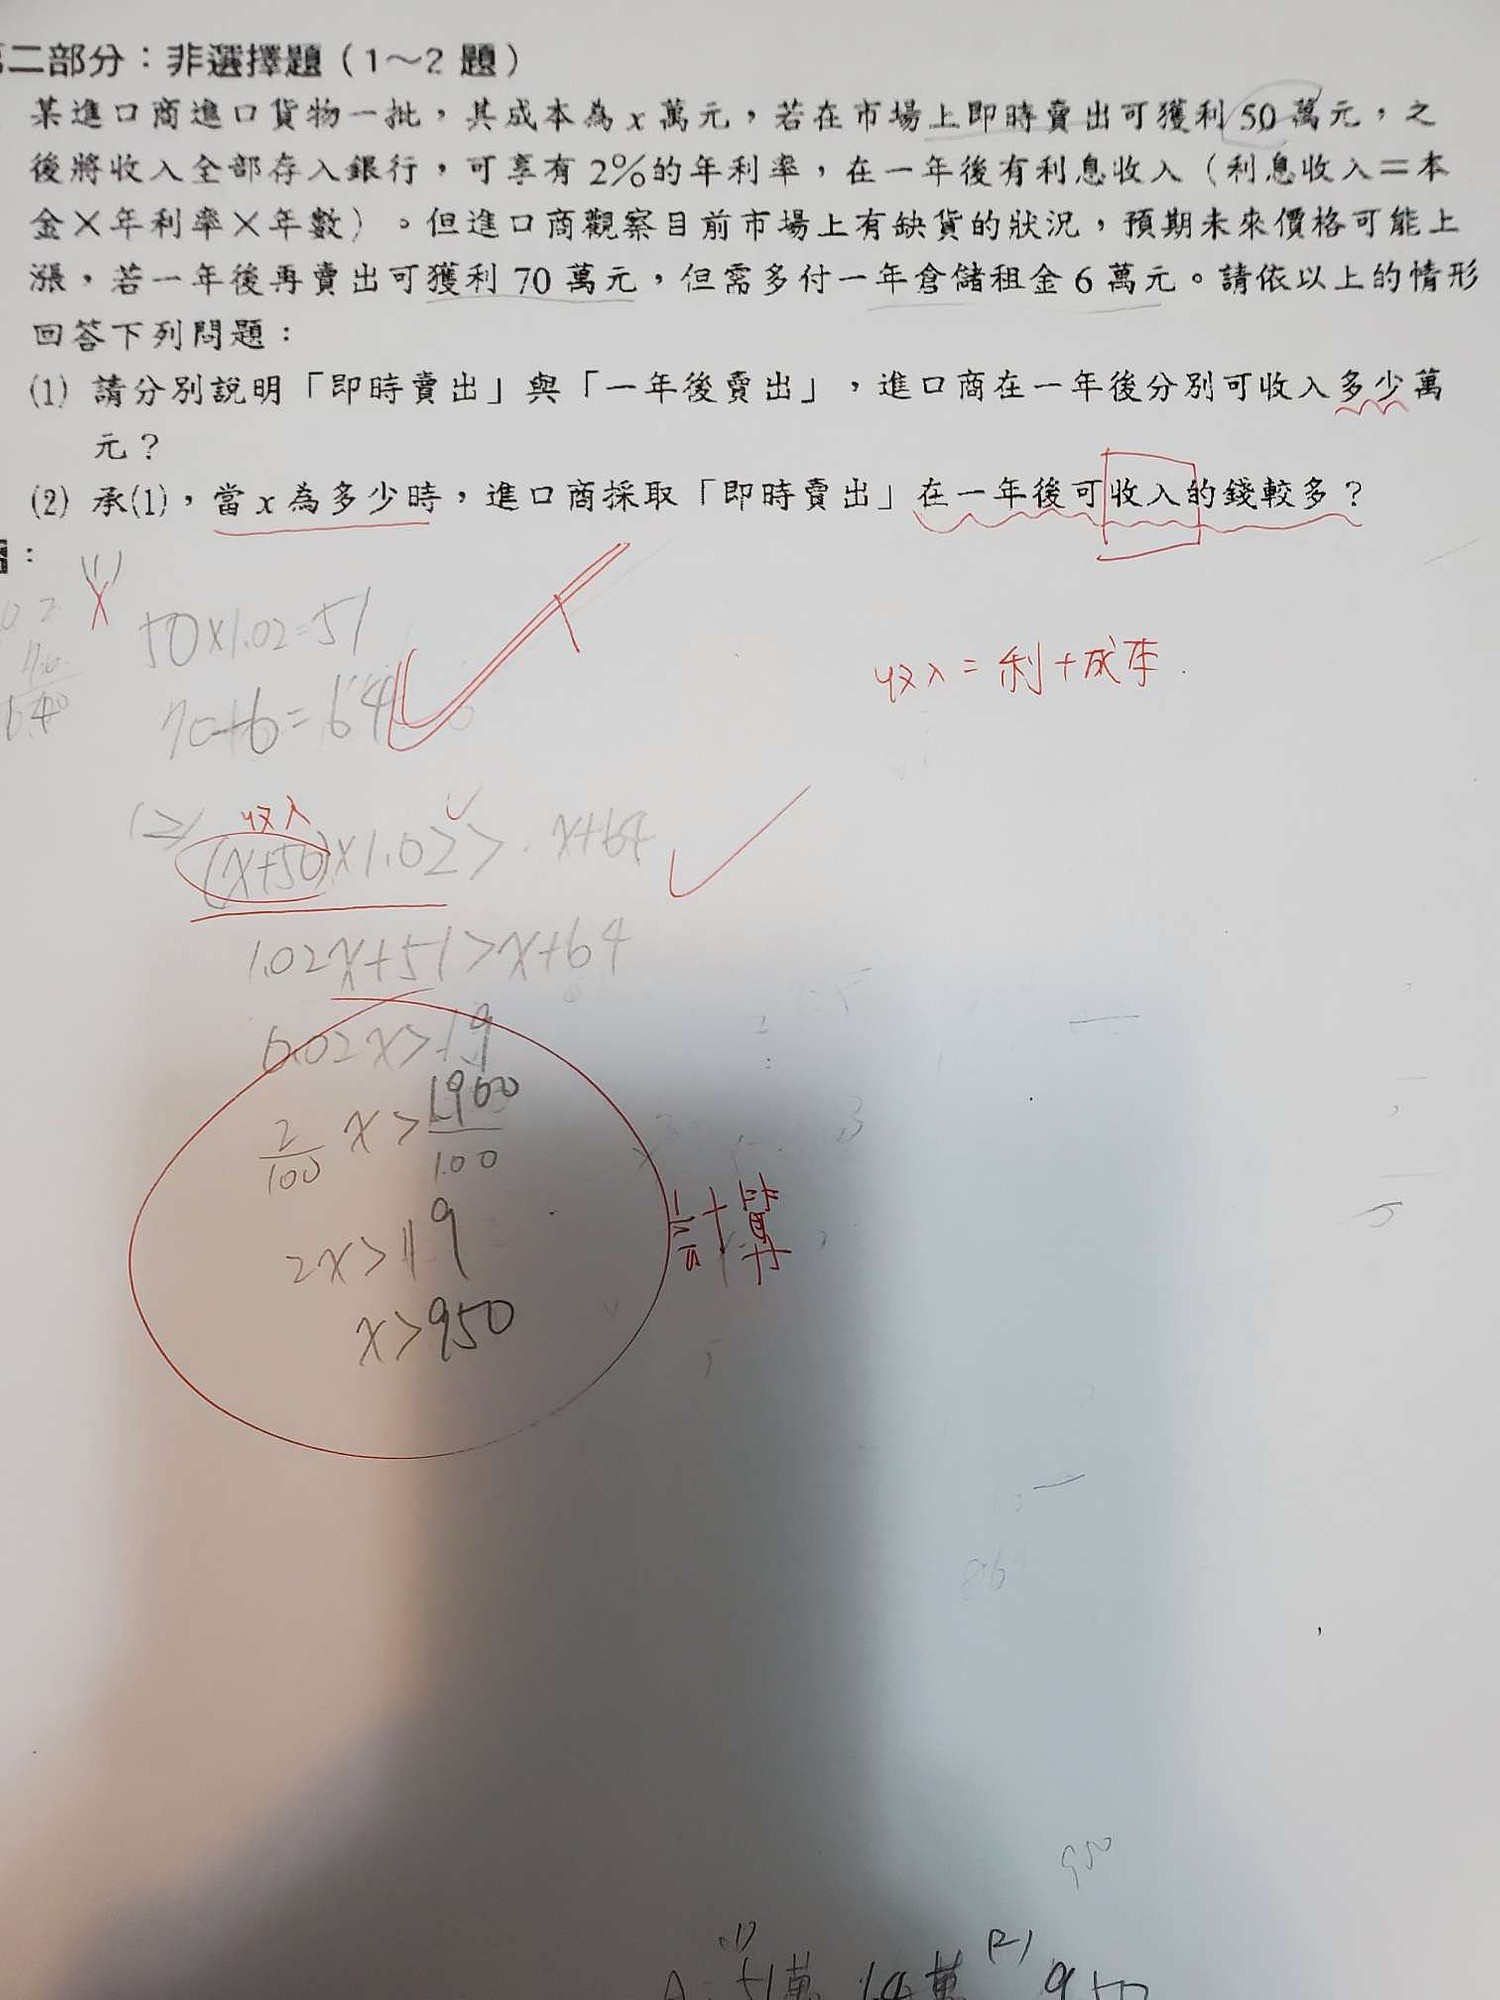 二部分：非選擇題（1～2 題）
某進口商進口貨物一批，其成本為 x 萬元，若在市場上即時賣出可獲利 50 萬元，之
後將收入全部存入銀行，可享有 2%的年利率，在一年後有利息收入（利息收入＝本
金×年利率×年數）。但進口商觀察目前市場上有缺貨的狀況，預期未來價格可能上
漲，若一年後再賣出可獲利 70 萬元，但需多付一年倉儲租金 6 萬元。請依以上的情形
回答下列問題：
(1) 請分別說明「即時賣出」與「一年後賣出」，進口商在一年後分別可收入多少萬
元？
(2) 承(1)，當 x 為多少時，進口商採取「即時賣出」在一年後可收入的錢較多？
：
(1)
50×1.02=51
收入=利+成本
70-6=64
(2)
收入
(x+50)×1.02>x+64
1.02x+51>x+64
0.02x>19
2/100 x>1900/100
計算
2x>119
x>950
950
(1) (2)
A: 51萬 64萬 950